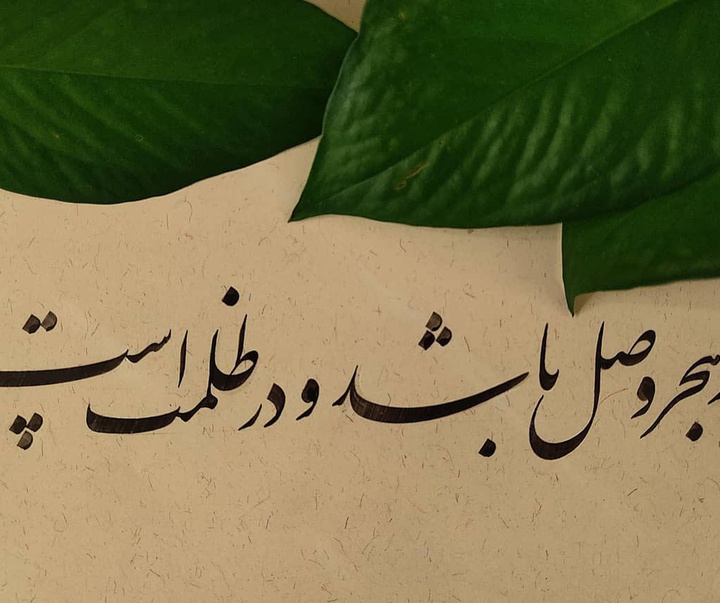 هجر وصل باشد و در ظلمت است